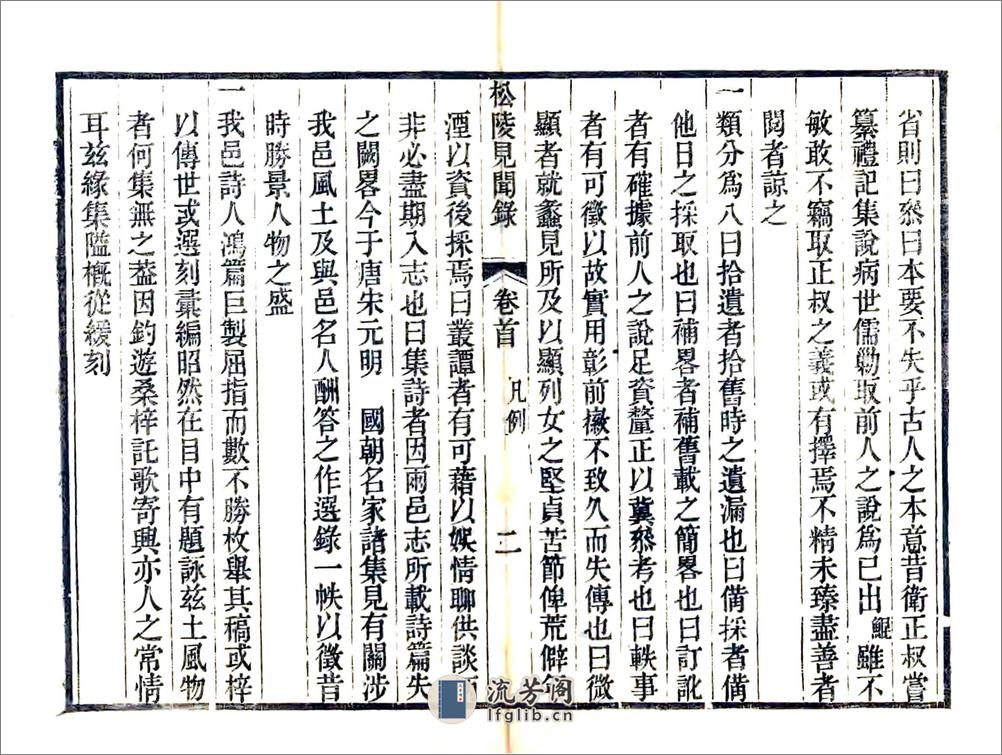 省則曰叅曰本要不失乎古人之本意昔衛正叔嘗
纂禮記集說病世儒勦取前人之說爲已出鯤雖不
敏敢不竊取正叔之義或有擇焉不精未臻盡善者
閱者諒之
一類分爲八曰拾遺者拾舊時之遺漏也曰備採者備
他日之採取也曰補畧者補舊載之簡畧也曰訂訛
者有確據前人之說足資釐正以冀叅考也曰軼事
者有可徵以故實用彰前徽不致久而失傳也曰微
顯者就蠡見所及以顯列女之堅貞苦節俾荒僻
松陵見聞錄 卷首 凡例 二
湮以資後採焉曰叢譚者有可藉以娛情聊供談
非必盡期入志也曰集詩者因兩邑志所載詩篇失
之闕畧今于唐宋元明 國朝名家諸集見有關涉
我邑風土及與邑名人酬答之作選錄一帙以徵昔
時勝景人物之盛
一我邑詩人鴻篇巨製屈指而數不勝枚舉其稿或梓
以傳世或選刻彙編昭然在目中有題詠茲土風物
者何集無之葢因釣遊桑梓託歌寄興亦人之常情
耳茲緣集隘槪從緩刻
流芳阁
lfglib.cn